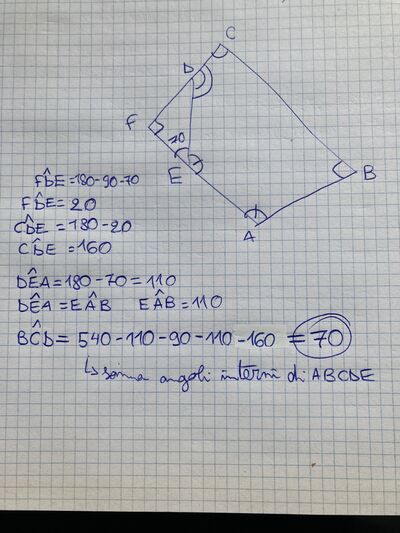 C
D
F
70
E
B
A
FD̂E = 180-90-70
FD̂E = 20
CD̂E = 180-20
CD̂E = 160
DÊA = 180-70 = 110
DÊA = EÂB EÂB = 110
BĈD = 540-110-90-110-160 = 70
↳ somma angoli interni di ABCDE